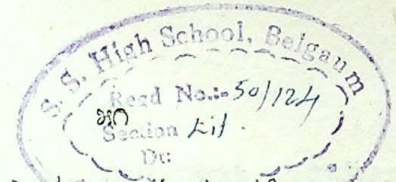 S. S. High School, Belgaum
Read No.:- 50/124
Section Lit.
Dt: